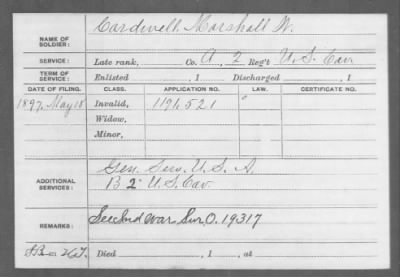 NAME OF SOLDIER: Cardwell, Marshall W.
SERVICE: Late rank, Co. A, 2 Reg't U.S. Cav
TERM OF SERVICE: Enlisted , 1 Discharged , 1
DATE OF FILING. CLASS. APPLICATION NO. LAW. CERTIFICATE NO.
1897, May 18 Invalid, 1196521
Widow,
Minor,
ADDITIONAL SERVICES: Gen. Serv. U.S.A.
B 2" U.S. Cav.
REMARKS: See Ind War Sur. O. 19317
Died , 1 , at